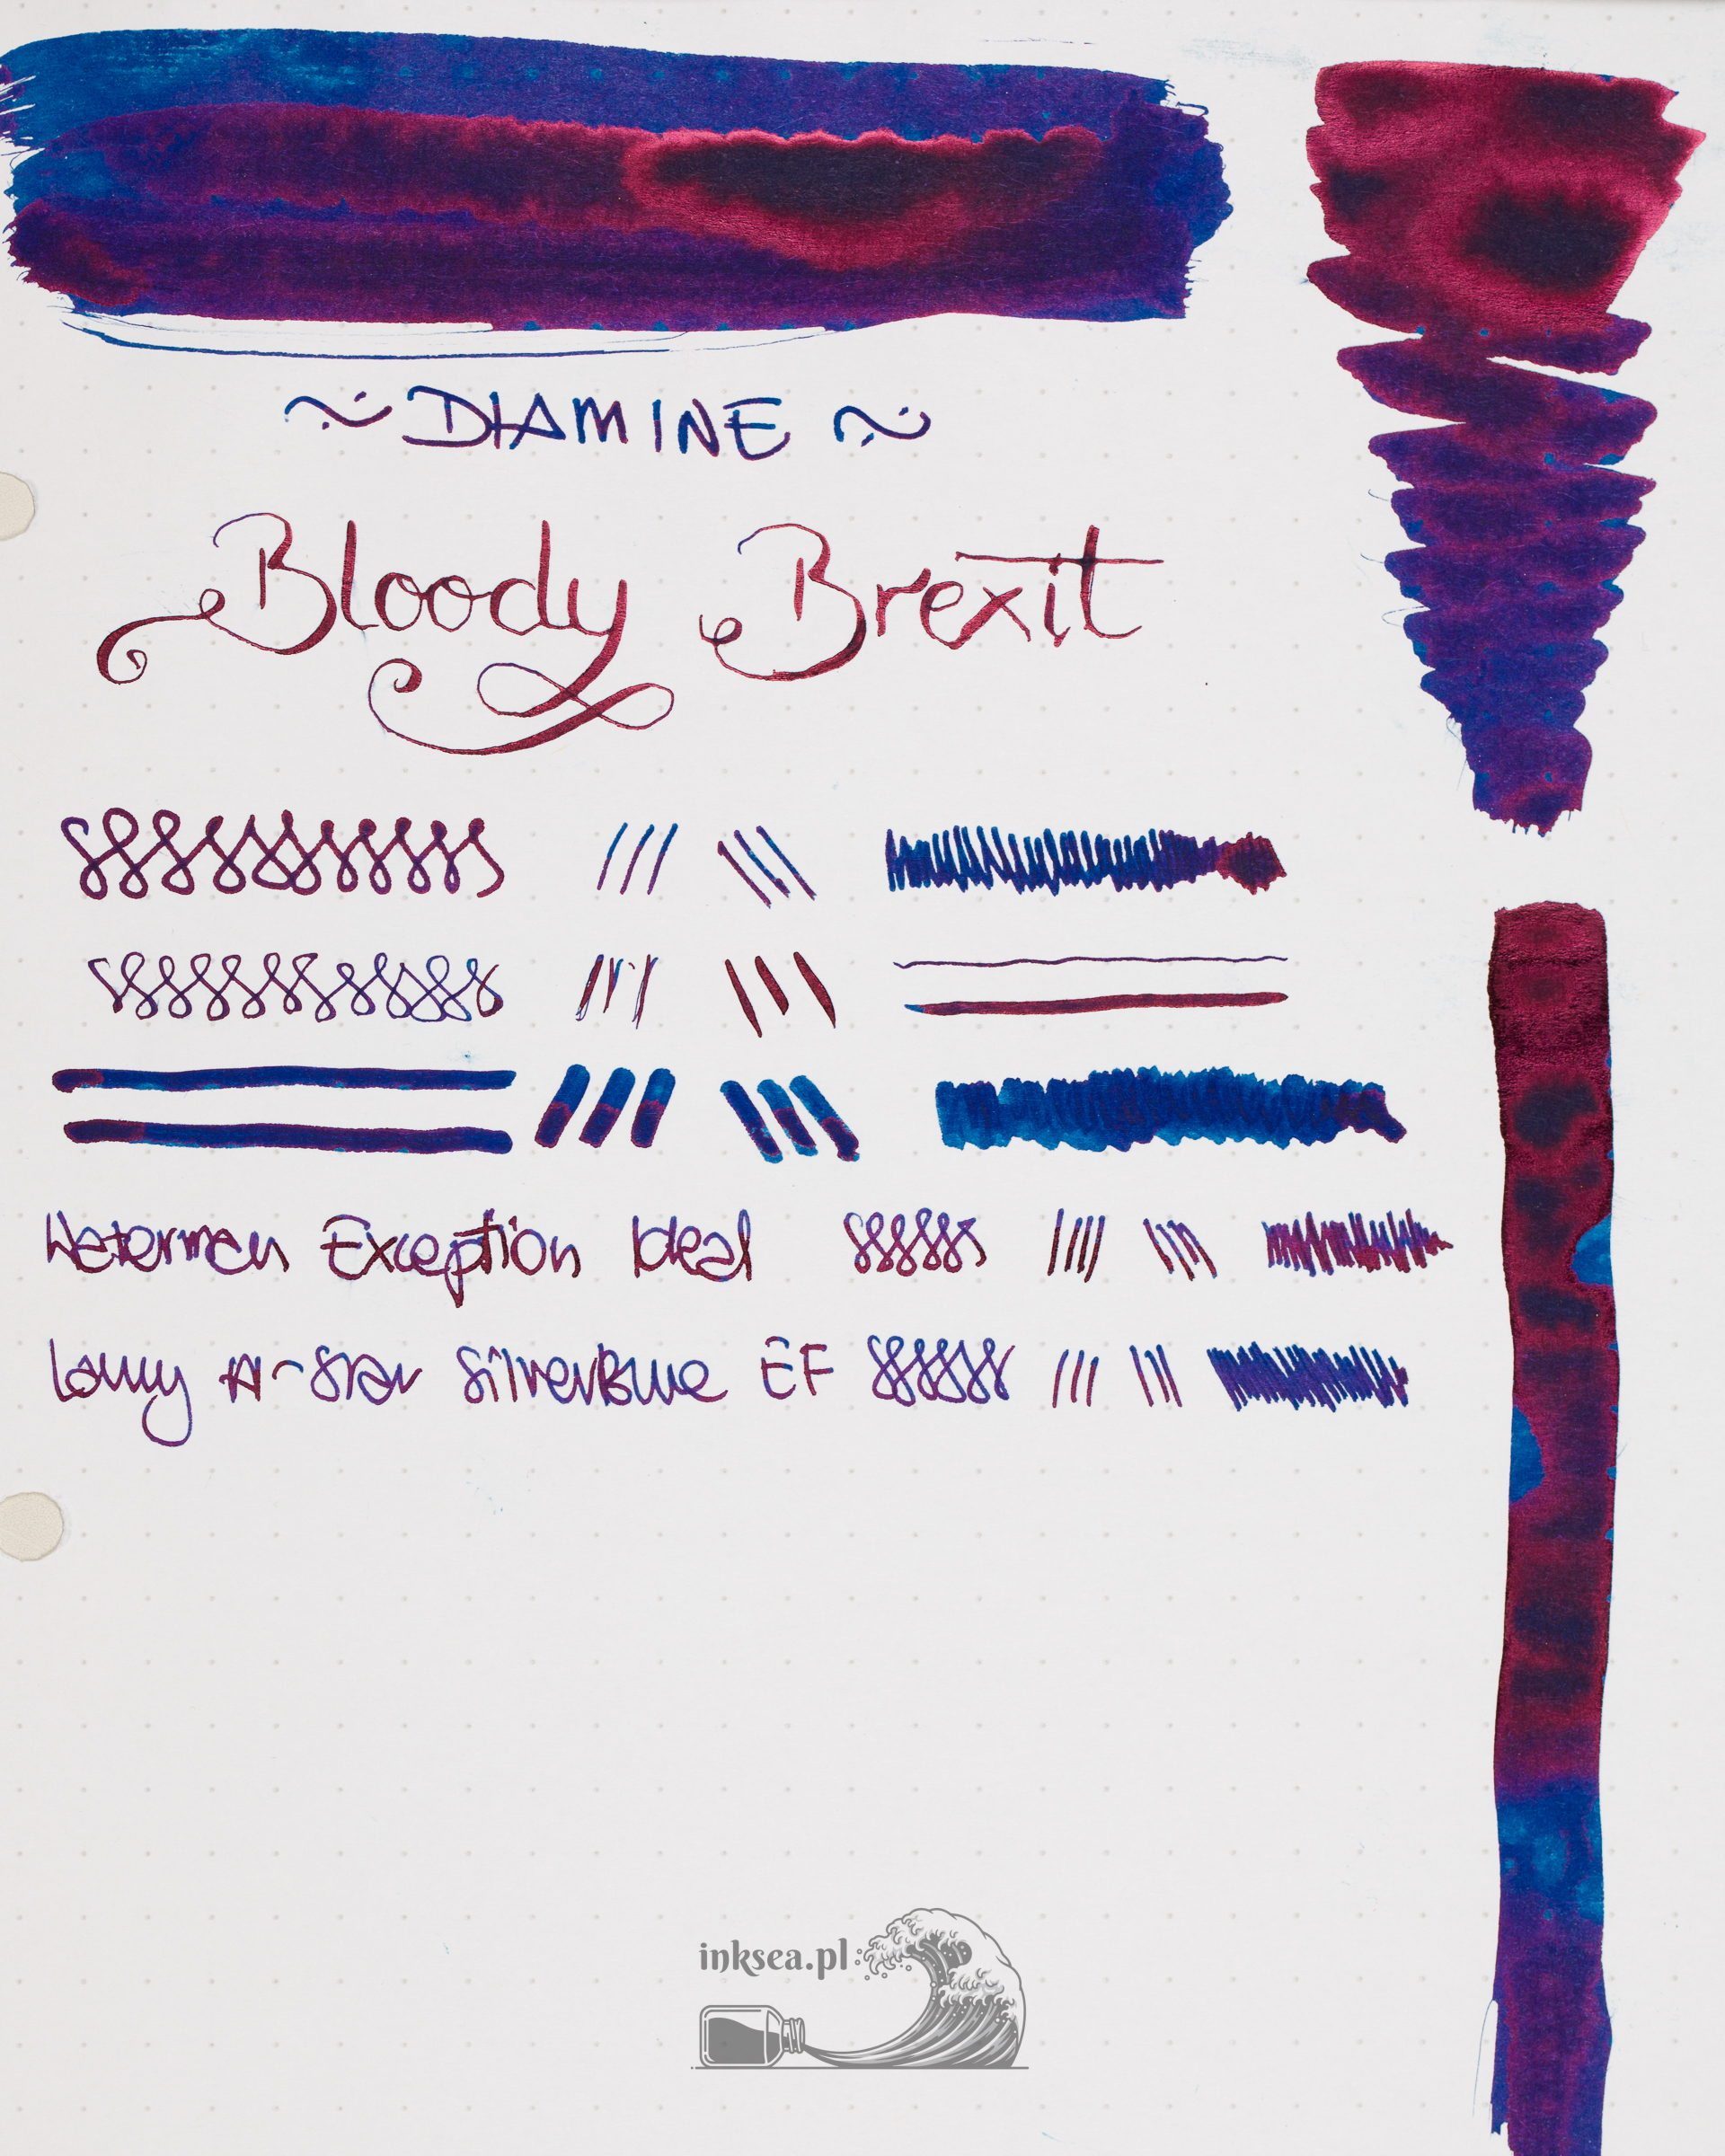 ~ DIAMINE ~
Bloody Brexit
Waterman Exception Ideal
Lamy Al-Star SilverBlue EF
inksea.pl